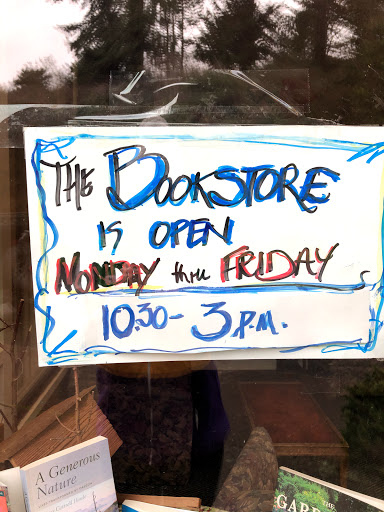 THE BOOKSTORE
IS OPEN
MONDAY thru FRIDAY
10:30 - 3 P.M.
A Generous
Nature
GARD